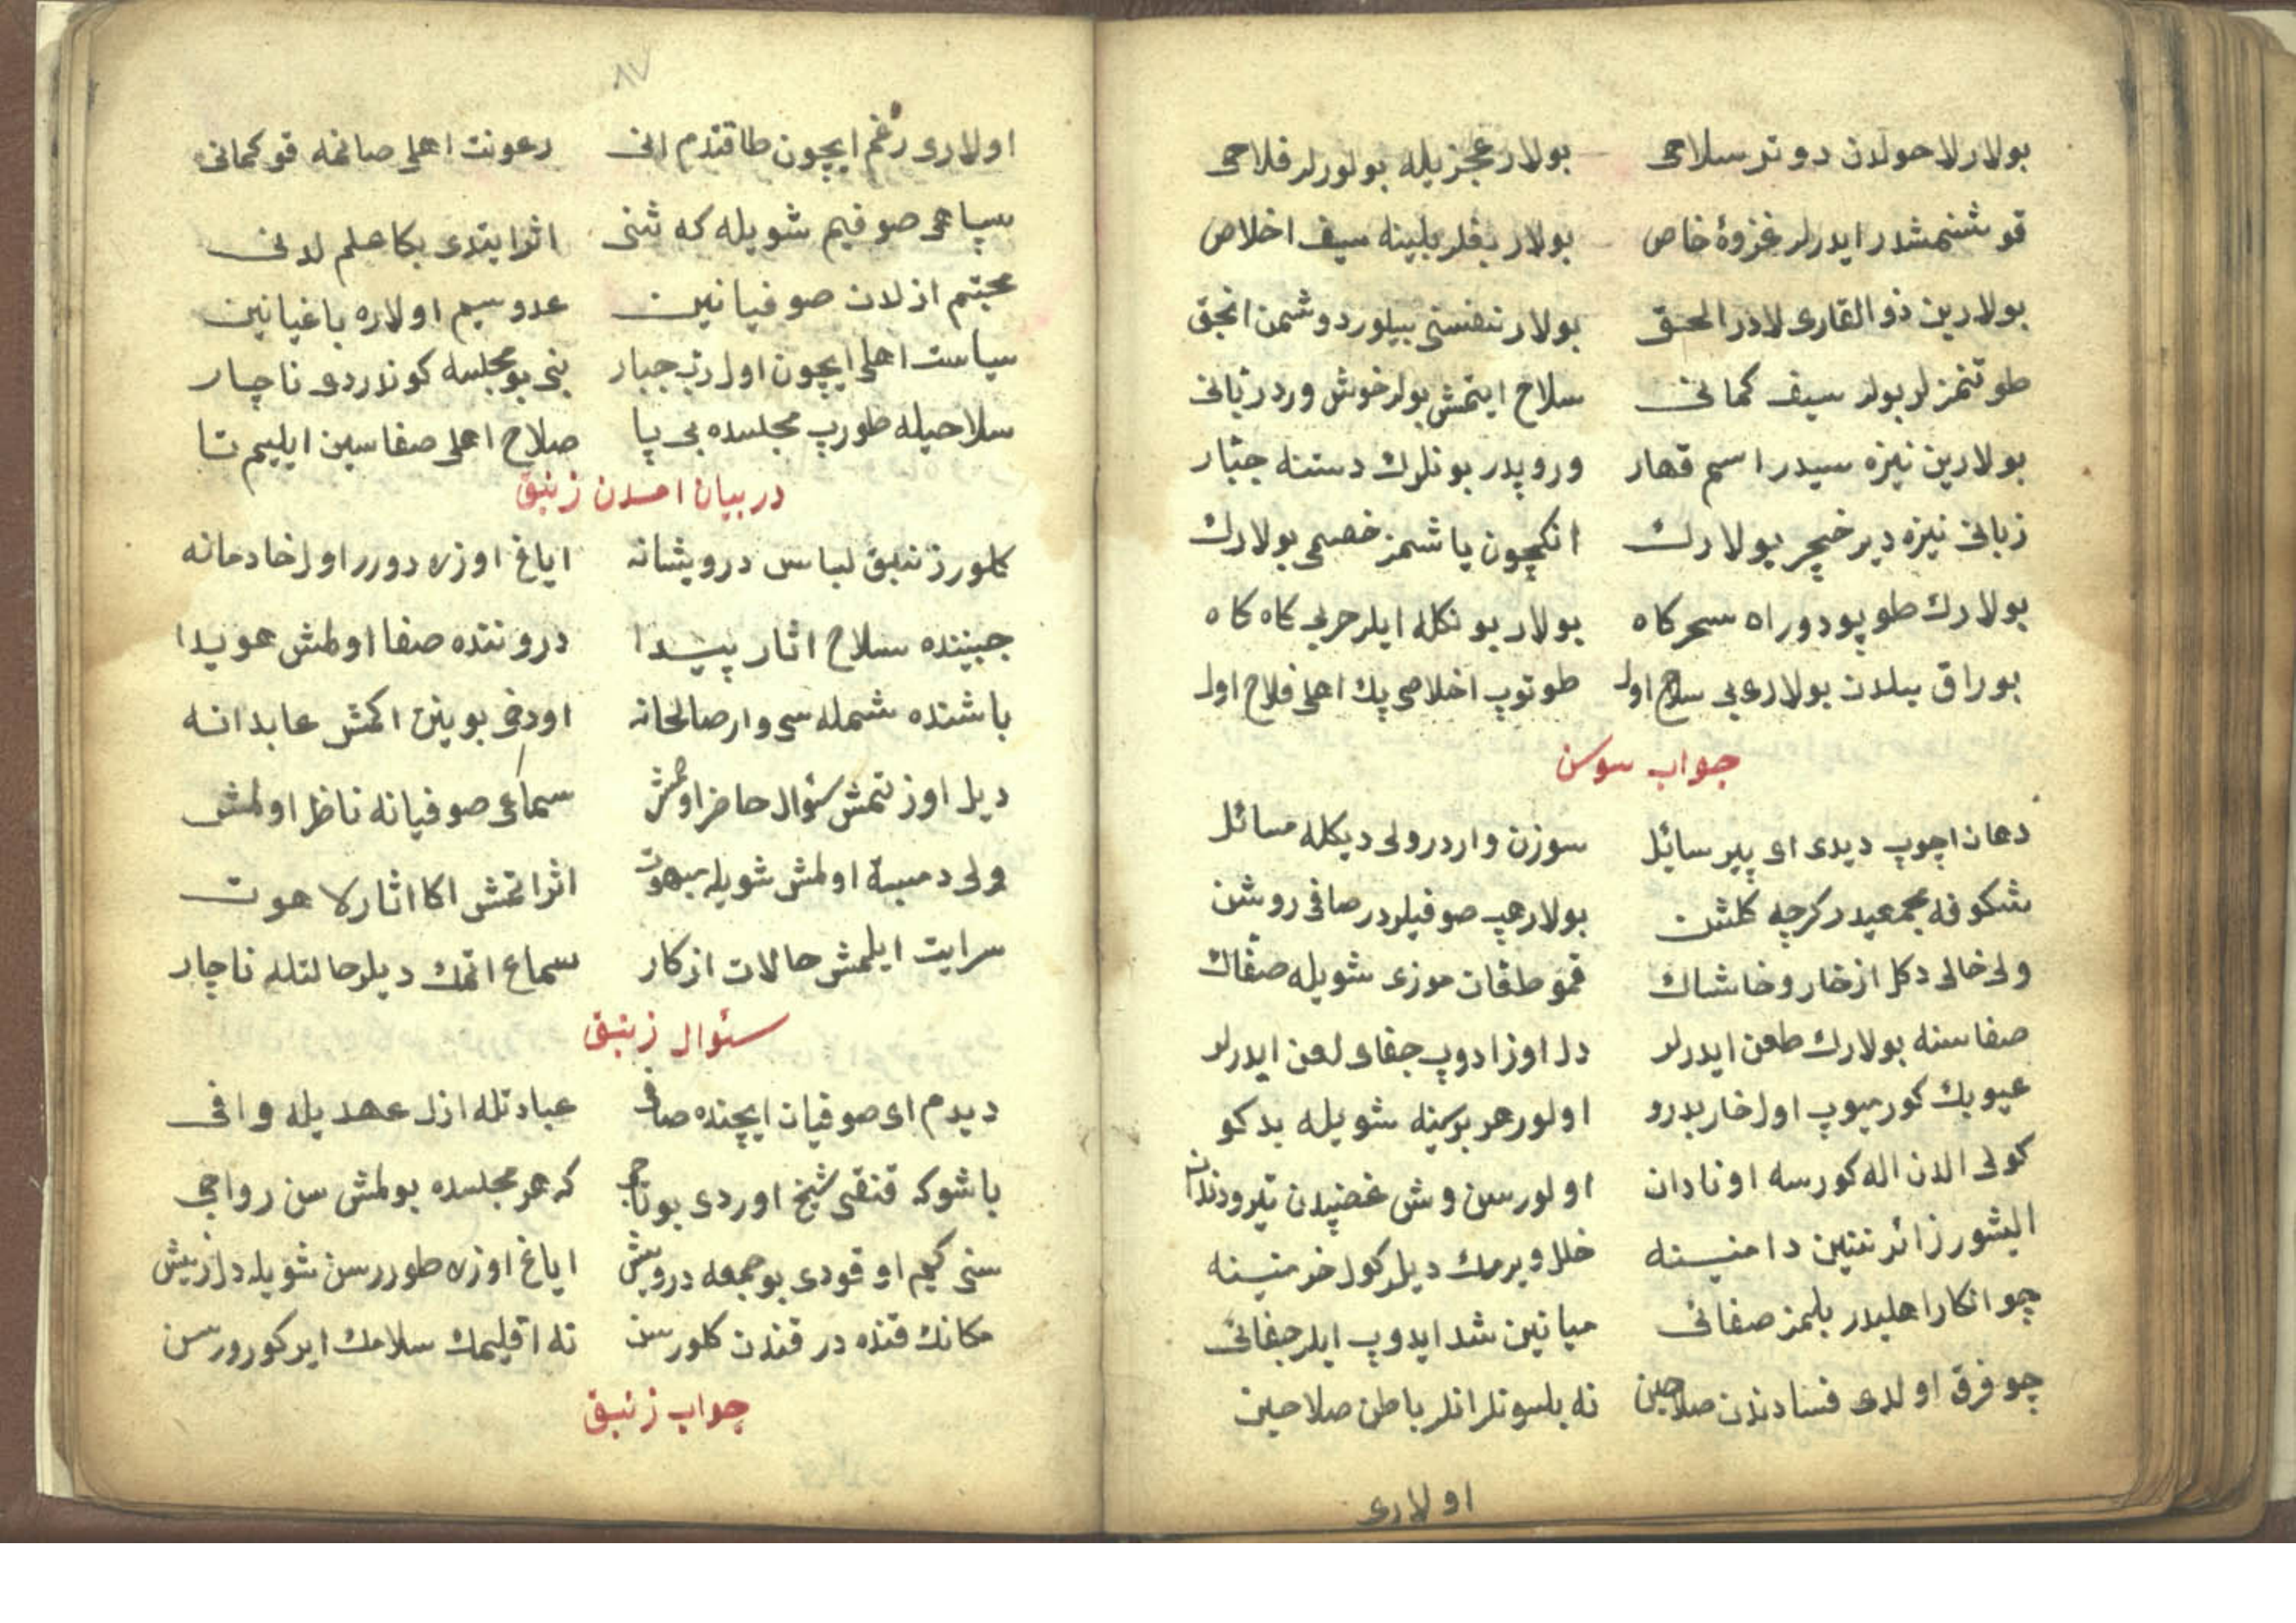 بولارلا حولدن دوتر سلاحی بولار عجزیله بولورلر فلاحی
قوشنمشدر ایدرلر غزوهٔ خاص بولار بغلر بلینه سیف اخلاص
بولارین ذو الفقاری لادر الحق بولار نفسنی بیلور دوشمن انجق
طوتمزلر بولر سیف کمانی سلاح ایتمش بولر خوش ورد زبانی
بولارین نیزه سیدر اسم قهار وروپدر بونلرك دستنه جبّار
زبانی نیزه دیر خنجر بولارك انکچون یاشمز خصمی بولارك
بولارك طوپودور اه سحرکاه بولار بونکله ایلر حربی کاه کاه
بوراق بیلدن بولاری بی سلاح اول طوتوپ اخلاصی پك اهل فلاح اول
جواب سوسن
دهان اچوپ دیدی ای پیر سائل سوزن واردر ولی دیکله مسائل
شکوفه مجمعیدر کرچه کلشن بولار هپ صوفیلردر صافی روشن
ولی خالی دکل از خار و خاشاك قمو طقان موزی شویله صفّاك
صفاسنه بولارك طعن ایدرلر دل اوزادوپ جفای لعن ایدرلر
عیوبك کورمیوپ اول خار بدرو اولور هر برینه شویله بدکو
کولی الدن اله کورسه او نادان اولور سین وش غضبدن تیز دندان
الیشور زائرننین دامنینه خلل ویرمك دیلر کول خرمنینه
چو انکار اهلیدر بلمز صفائی میانین شد ایدوپ ایلر جفائی
چو فرق اولدی فساددندن صلاحین نه بلسونلر انلر باطن صلاحین
اولاری
٨٧
اولاری رغم ایچون طاقندم انی رعونت اهلی صانمه قو کمانی
سپاهی صوفیم شویله که شنی اثر ایتدی بکا علم لدنی
محبّم ازلدن صوفیانین عدوسیم اولاره باغیانین
سیاست اهلی ایچون اول رب جبار بنی بو مجلسه کوندردی ناچار
سلاحیله طورپ مجلسده بی پا صلاح اهلی صفاسین ایلیم تا
در بیان امدن زنبق
کلور زنبق لباس درویشانه ایاغ اوزره دورر اول خادمانه
جبیننده سلاح اثار پیدا دروننده صفا اولمش هویدا
باشنده شمله سی وار صالحانه اودخی بوینن اکمش عابدانه
دیل اوزتمش سئوال حاضر اولمش سماعی صوفیانه ناظر اولمش
ولی دمبسته اولمش شویله مبهوت اثر اتمش اکا اثار لاهوت
سرایت ایلمش حالات ازکار سماع اتمك دیلر حالتله ناچار
سئوال زنبق
دیدم ای صوفیان ایچنده صافی عبادتله ازل عهدیله وافی
باشوکه قنقی شیخ اوردی بو تاجی که هر مجلسده بولمش سن رواجی
سنی کیم اوقودی بو جمعه درویش ایاغ اوزره طوررسن شویله دلریش
مکانك قنده در قندن کلورسن نه اقلیمك سلامك ایرکورورسن
جواب زنبق